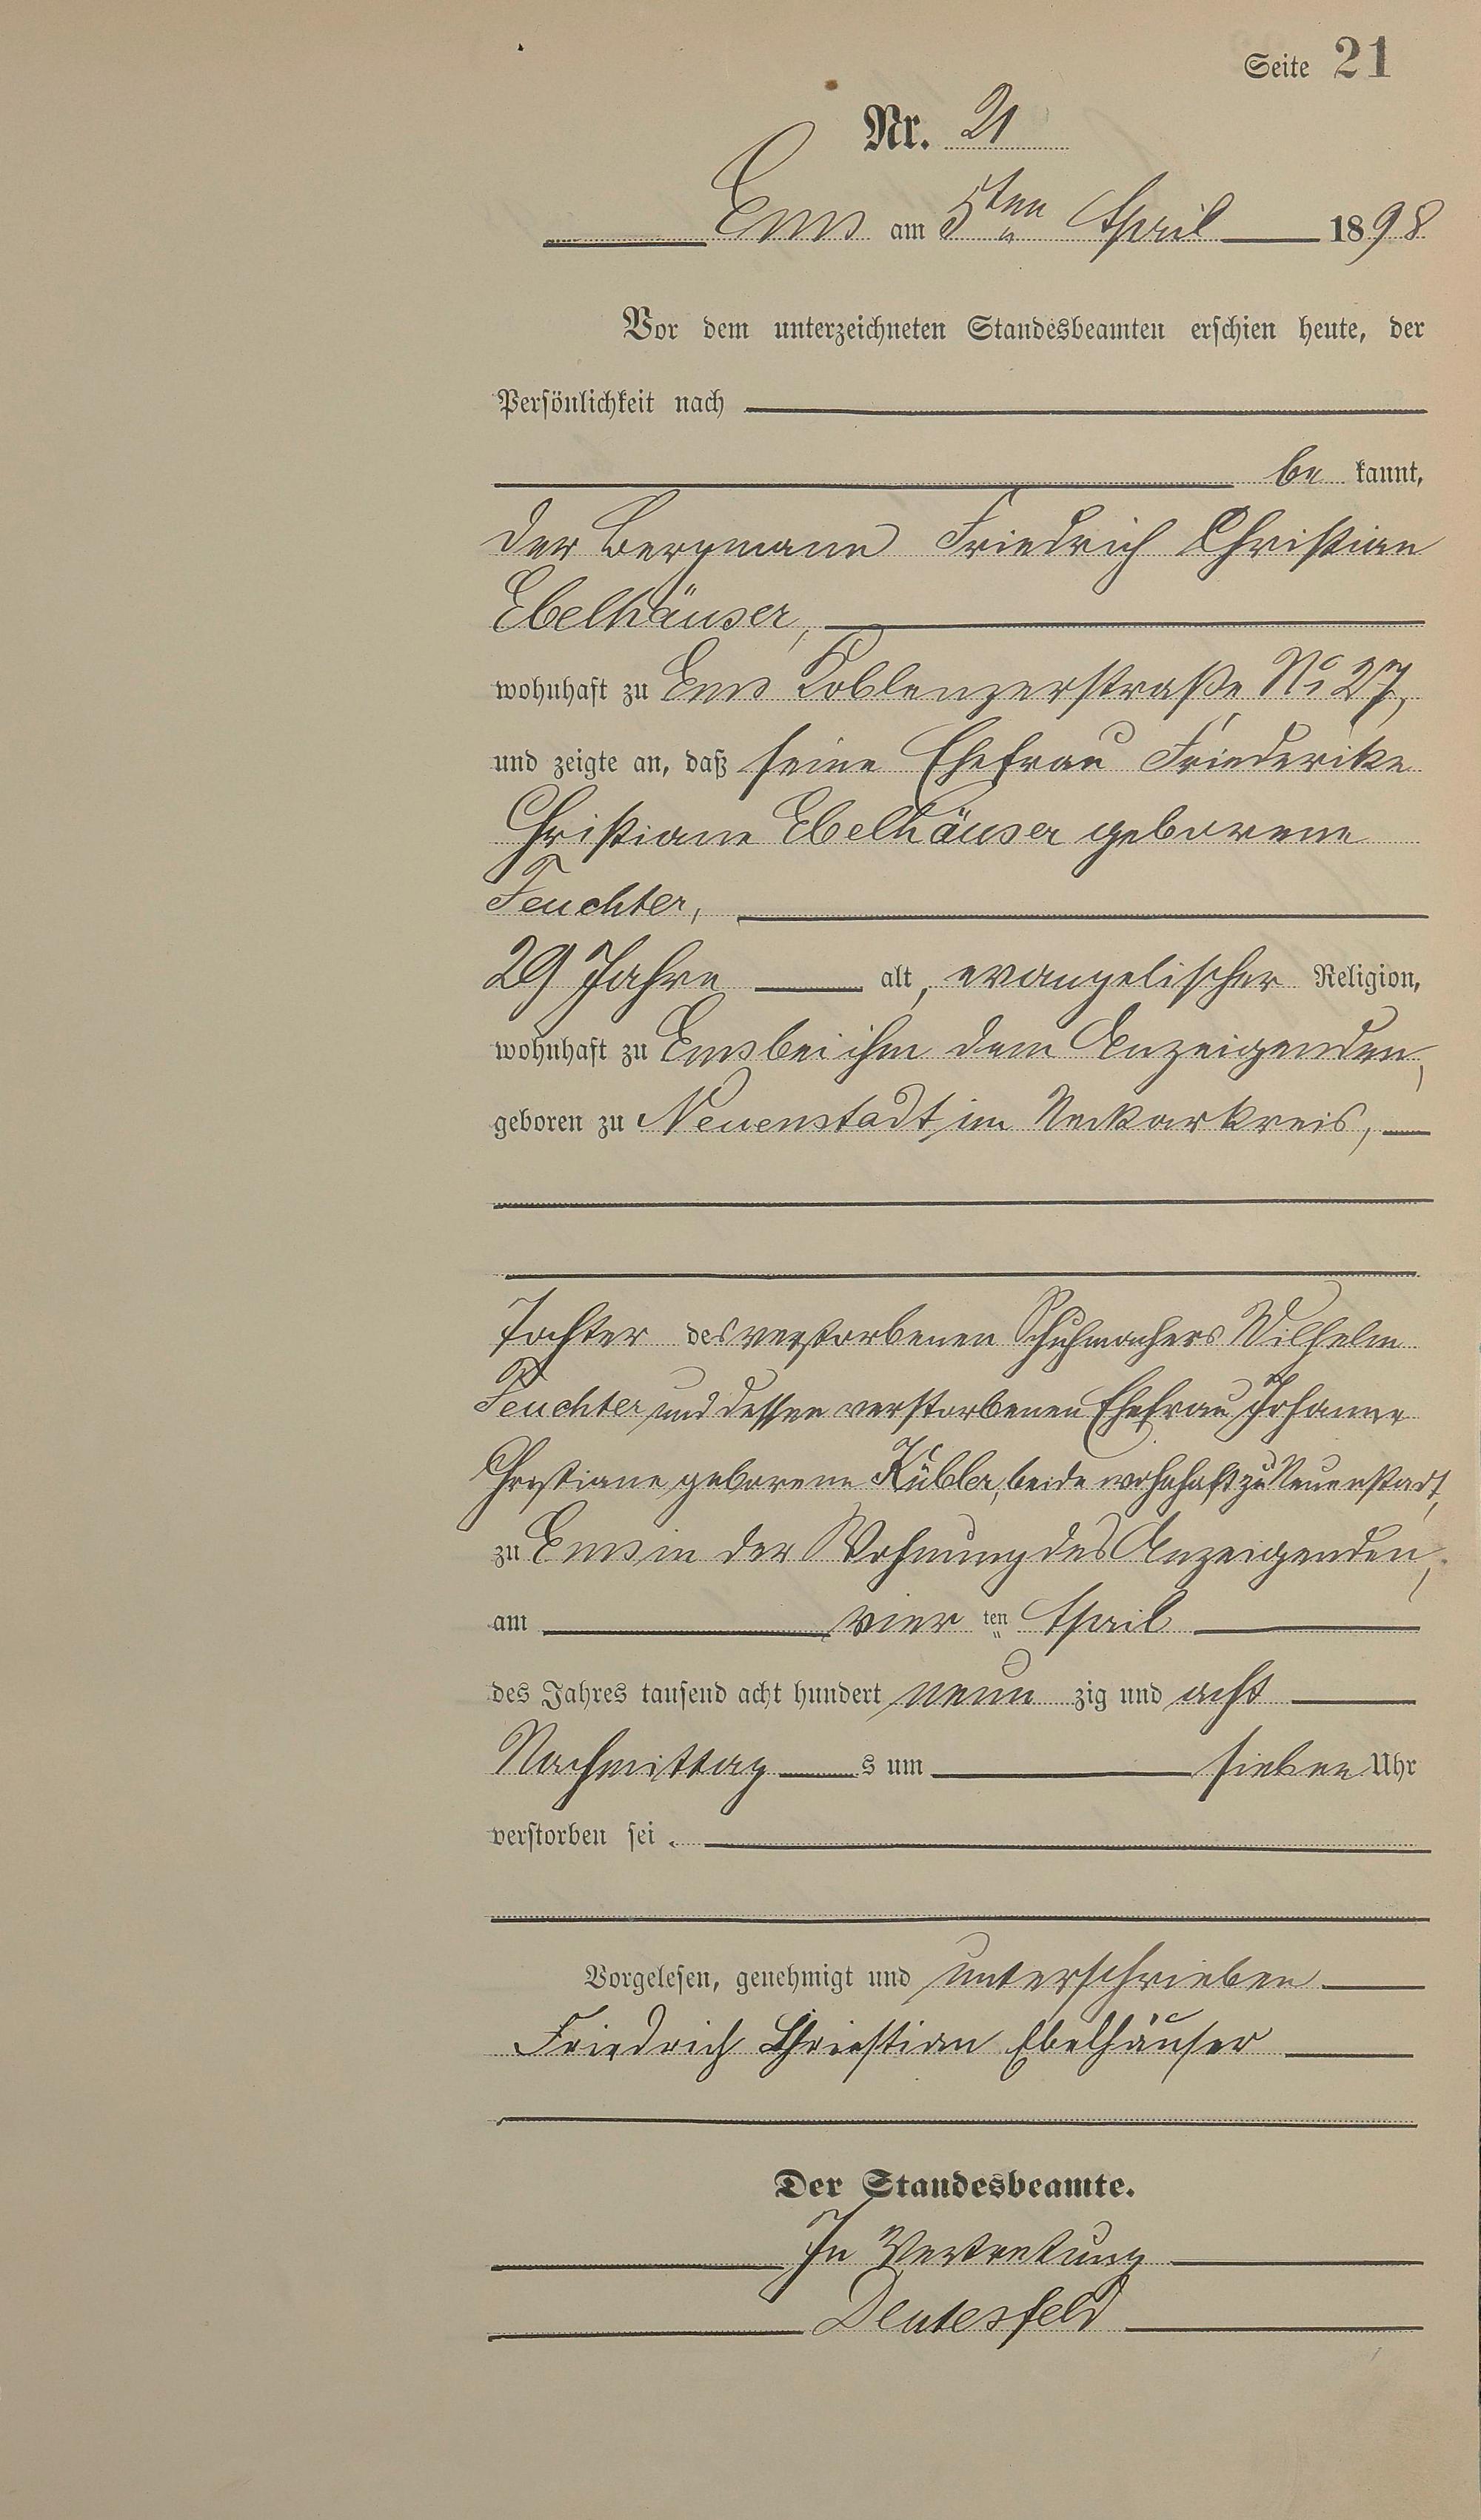 Seite 21
Nr. 21
Ems am 5ten April 1898
Vor dem unterzeichneten Standesbeamten erschien heute, der
Persönlichkeit nach
be kannt,
der Bergmann Friedrich Christian
Ebelhäuser,
wohnhaft zu Ems Koblenzerstraße No 27,
und zeigte an, daß seine Ehefrau Friederike
Christiane Ebelhäuser geborene
Feuchter,
29 Jahre alt, evangelischer Religion,
wohnhaft zu Ems bei ihm dem Anzeigenden,
geboren zu Neuenstadt im Neckarkreis,
Tochter des verstorbenen Schuhmachers Wilhelm
Feuchter und dessen verstorbenen Ehefrau Johanne
Christiane geborene Kübler, beide wohnhaft zu Neuenstadt,
zu Ems in der Wohnung des Anzeigenden,
am vier ten April
des Jahres tausend acht hundert neun zig und acht
Nachmittag s um sieben Uhr
verstorben sei.
Vorgelesen, genehmigt und unterschrieben
Friedrich Christian Ebelhäuser
Der Standesbeamte.
In Vertretung
Deutesfeld